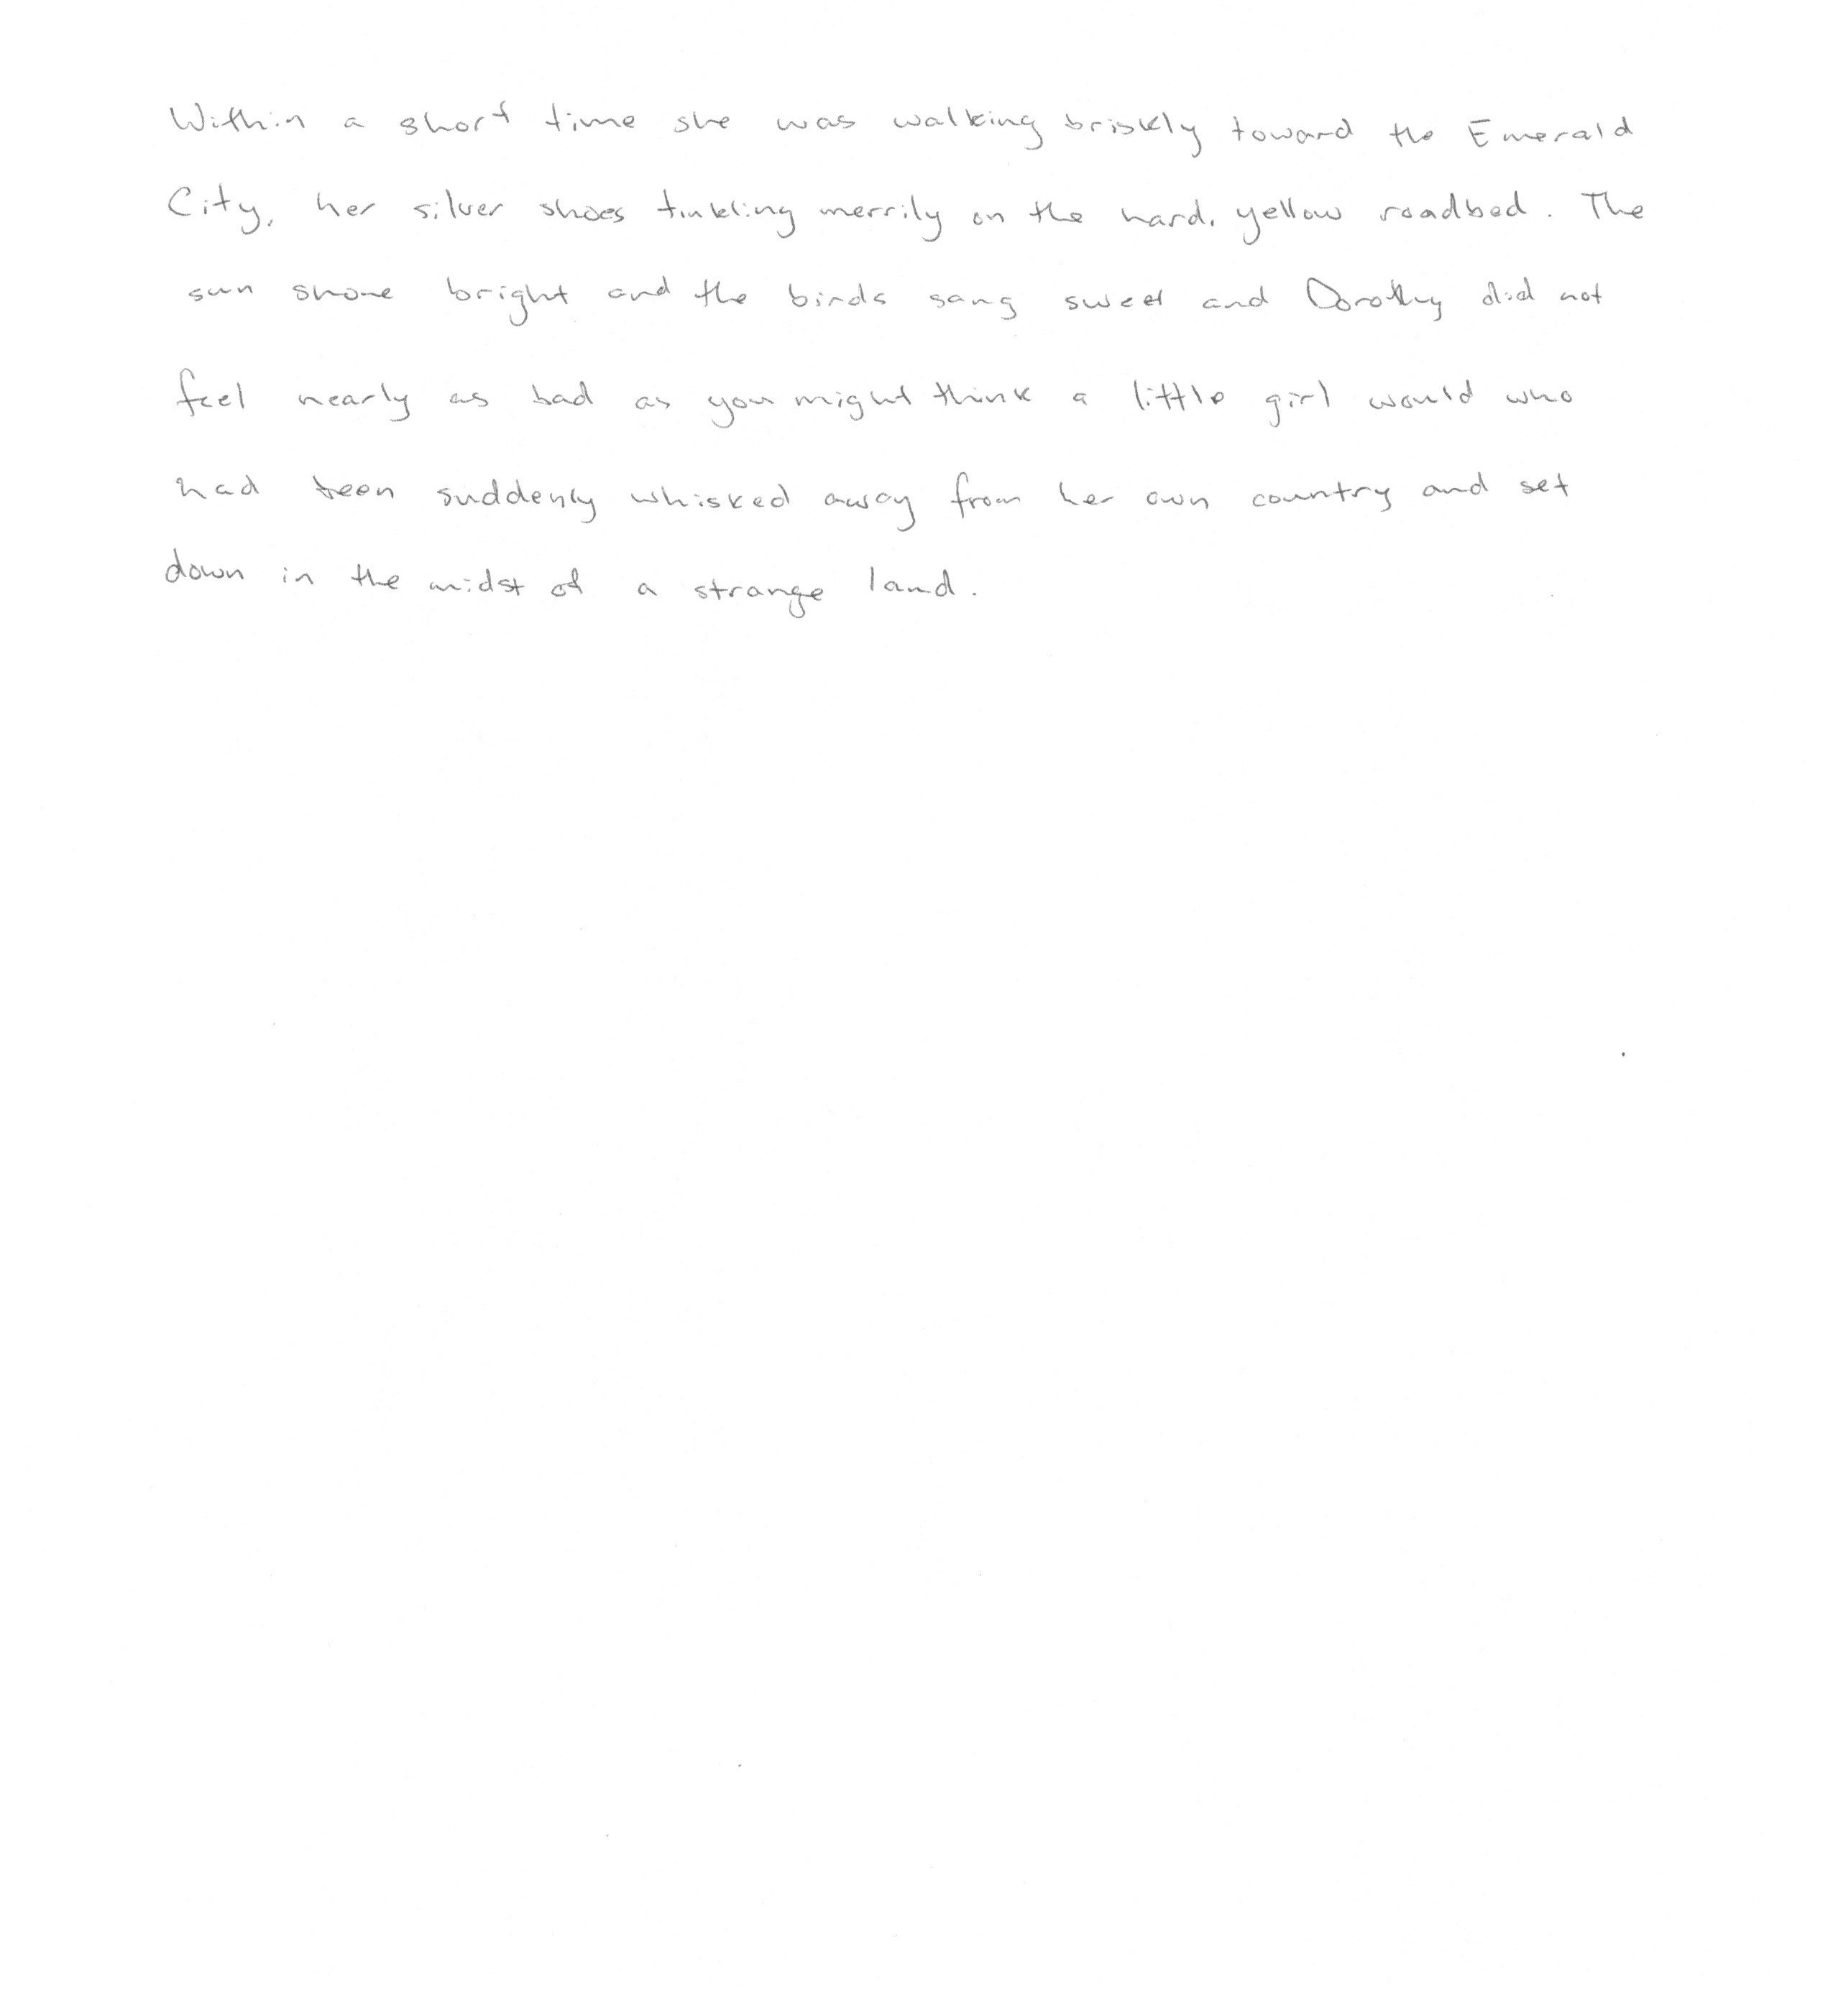 Within a short time she was walking briskly toward the Emerald
City, her silver shoes tinkling merrily on the hard, yellow roadbed. The
sun shone bright and the birds sang sweet and Dorothy did not
feel nearly as bad as you might think a little girl would who
had been suddenly whisked away from her own country and set
down in the midst of a strange land.